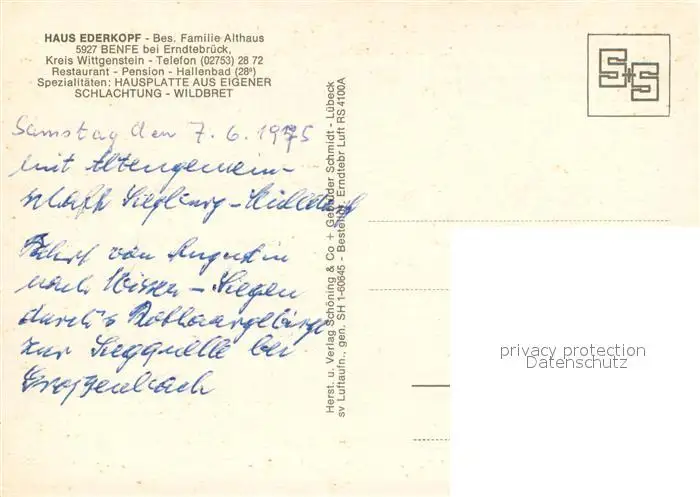 HAUS EDERKOPF - Bes. Familie Althaus
5927 BENFE bei Erndtebrück,
Kreis Wittgenstein - Telefon (02753) 28 72
Restaurant - Pension - Hallenbad (28°)
Spezialitäten: HAUSPLATTE AUS EIGENER
SCHLACHTUNG - WILDBRET
Samstag den 7. 6. 1975
mit Altengemein-
schaft Siegburg -
Fahrt von Augustin
nach Wissen - Siegen
durch's Rothaargebirge
zur Siegquelle bei
Herst. u. Verlag Schöning & Co + Gebrüder Schmidt - Lübeck
sv Luftaufn., gen. SH 1-60645 - Bestellnr. Erndtebr Luft RS 4100A
S+S
privacy protection
Datenschutz